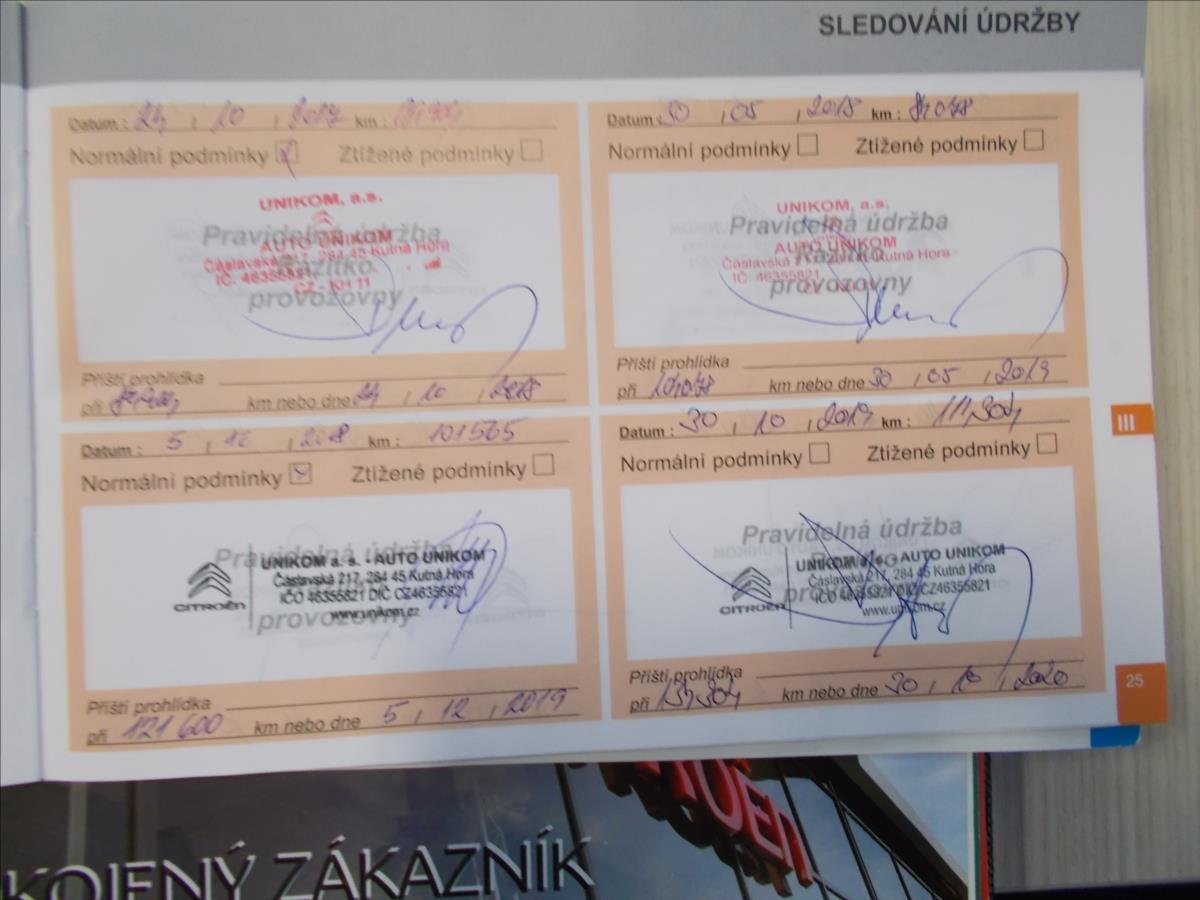 SLEDOVÁNÍ ÚDRŽBY
Datum : 10 2017 km :
Normální podmínky Ztížené podmínky
UNIKOM, a.s.
Pravidelná údržba
AUTO UNIKOM
Čáslavská 217, 284 45 Kutná Hora
Razítko
IČ: 46355821
CZ - KH 11
provozovny
Příští prohlídka
při km nebo dne 10 2018
Datum : 30 05 2018 km :
Normální podmínky Ztížené podmínky
UNIKOM, a.s.
Pravidelná údržba
AUTO UNIKOM
Čáslavská Kutná Hora
Razítko
IČ: 46355821
provozovny
Příští prohlídka
při km nebo dne 30 05 2019
Datum : 5 12 2018 km : 101565
Normální podmínky Ztížené podmínky
Pravidelná údržba
UNIKOM a. s. - AUTO UNIKOM
Čáslavská 217, 284 45 Kutná Hora
IČO 46355821 DIČ CZ46355821
CITROËN
www.unikom.cz
provozovny
Příští prohlídka
při 121 600 km nebo dne 5 12 2019
Datum : 30 10 2019 km :
Normální podmínky Ztížené podmínky
Pravidelná údržba
UNIKOM a. s. - AUTO UNIKOM
Čáslavská 217, 284 45 Kutná Hora
IČO 46355821 DIČ CZ46355821
CITROËN
www.unikom.cz
Příští prohlídka
při km nebo dne 30 10 2020
III
25
KOJENÝ ZÁKAZNÍK